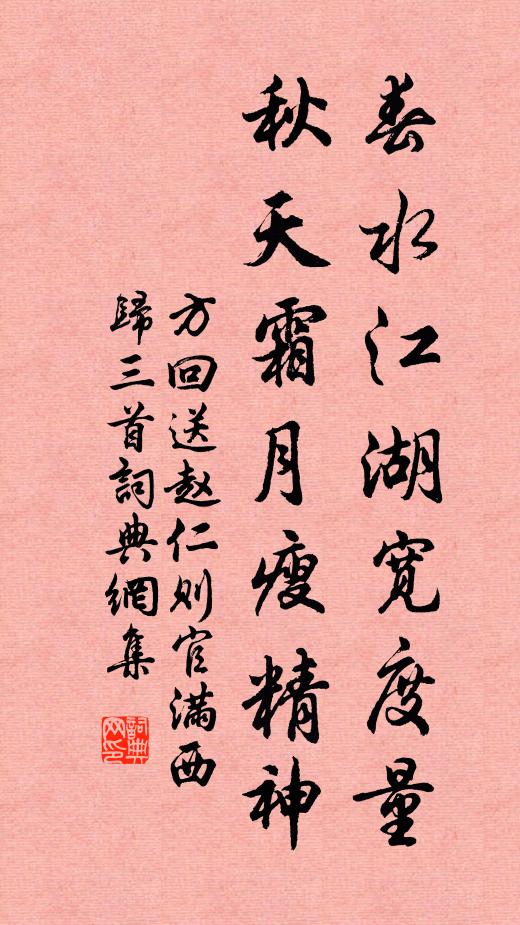 春水江湖宽度量
秋天霜月瘦精神
方回送赵仁则官满西
歸三首詞典網集
詞典网印